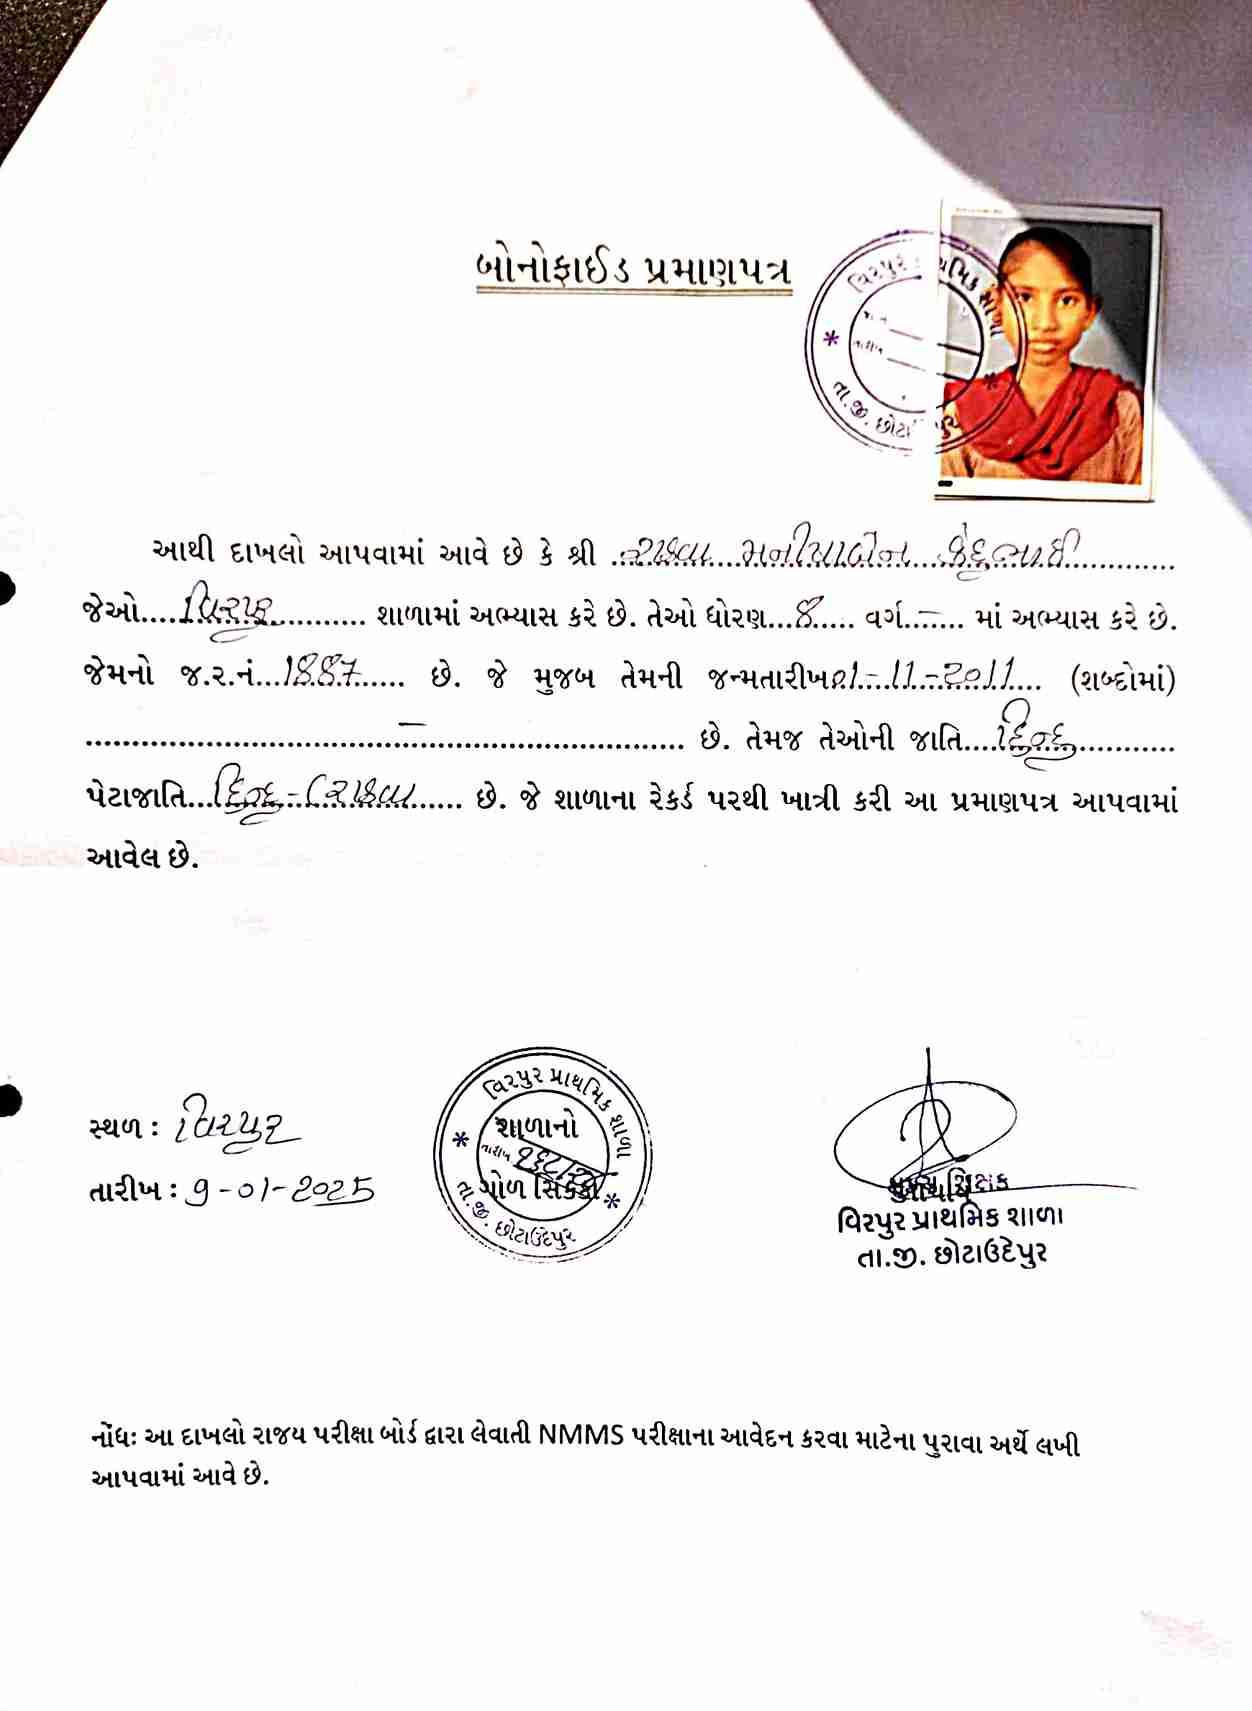 બોનોફાઈડ પ્રમાણપત્ર
વિરપુર પ્રાથમિક શાળા
તારીખ
તા.જી. છોટાઉદેપુર
આથી દાખલો આપવામાં આવે છે કે શ્રી ..રાઠવા...મનીષાબેન...કેદુભાઈ............
જેઓ.....વિરપુર............ શાળામાં અભ્યાસ કરે છે. તેઓ ધોરણ...8..... વર્ગ...–.... માં અભ્યાસ કરે છે.
જેમનો જ.ર.નં...1887...... છે. જે મુજબ તેમની જન્મતારીખ01-11-2011.... (શબ્દોમાં)
.................................–............................... છે. તેમજ તેઓની જાતિ....હિન્દુ............
પેટાજાતિ...હિન્દુ-રાઠવા...... છે. જે શાળાના રેકર્ડ પરથી ખાત્રી કરી આ પ્રમાણપત્ર આપવામાં
આવેલ છે.
સ્થળ : વિરપુર
તારીખ : 9-01-2025
વિરપુર પ્રાથમિક શાળા
શાળાનો
તારીખ
ગોળ સિક્કો
તા.જી. છોટાઉદેપુર
મુખ્ય શિક્ષક
વિરપુર પ્રાથમિક શાળા
તા.જી. છોટાઉદેપુર
નોંધઃ આ દાખલો રાજય પરીક્ષા બોર્ડ દ્વારા લેવાતી NMMS પરીક્ષાના આવેદન કરવા માટેના પુરાવા અર્થે લખી
આપવામાં આવે છે.